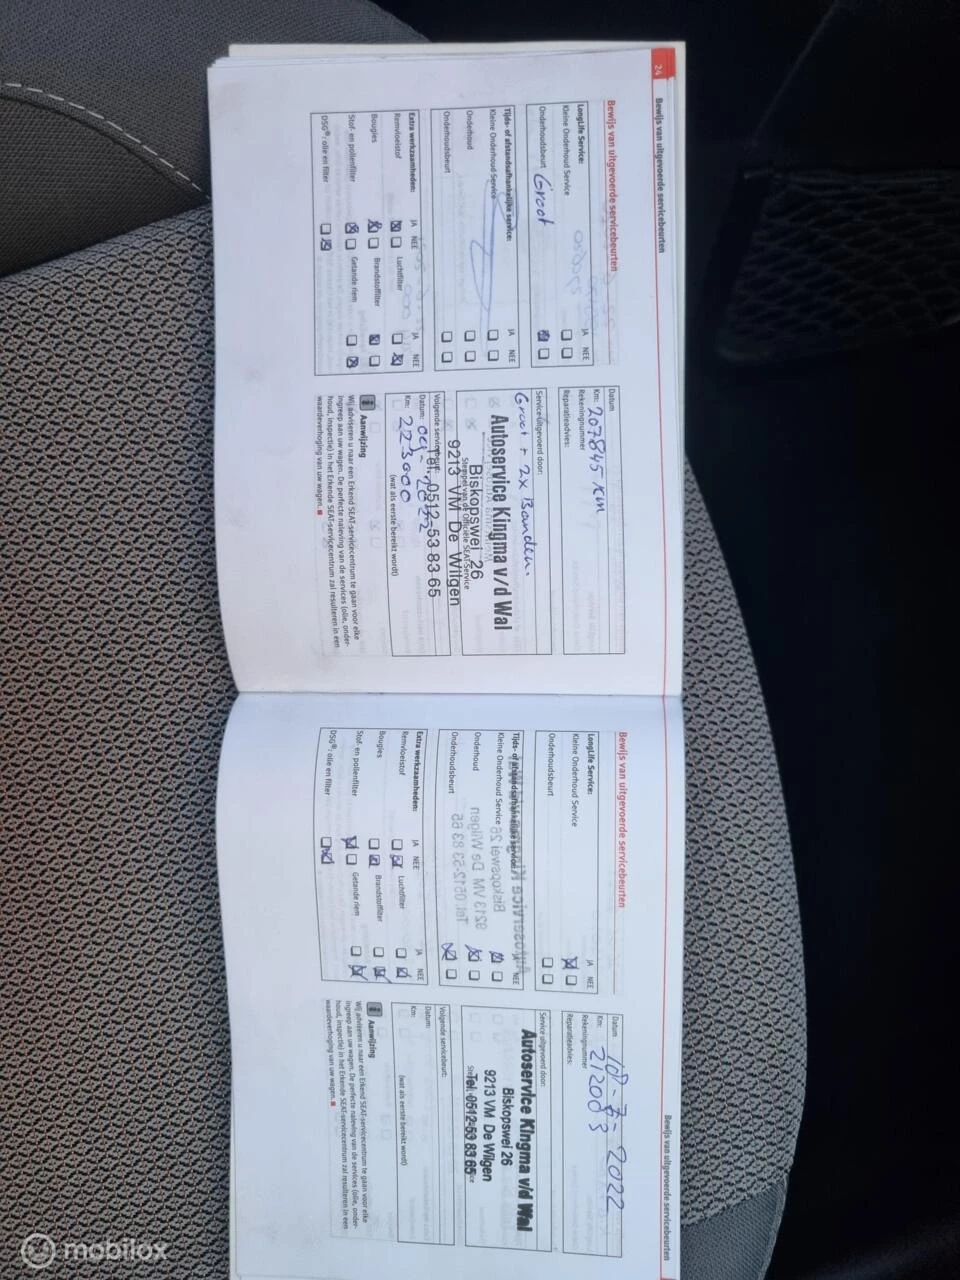 24
Bewijs van uitgevoerde servicebeurten
Bewijs van uitgevoerde servicebeurten
LongLife Service:
JA NEE
Kleine Onderhoud Service
Onderhoudsbeurt Groot
Tijds- of afstandsafhankelijke service:
JA NEE
Kleine Onderhoud Service
Onderhoud
Onderhoudsbeurt
Extra werkzaamheden:
JA NEE
JA NEE
Remvloeistof
Luchtfilter
Bougies
Brandstoffilter
Stof- en pollenfilter
Getande riem
DSG®: olie en filter
Datum
Km: 207845 km
Rekeningnummer
Reparatieadvies:
Service uitgevoerd door:
Groot + 2x Banden.
Autoservice Kingma v/d Wal
Biskopswei 26
Stempel van de Officiële SEAT-Service
9213 VM De Wilgen
Tel. 0512-53 83 65
Volgende servicebeurt:
Datum: 2022
Km: 223000
(wat als eerste bereikt wordt)
Aanwijzing
Wij adviseren u naar een Erkend SEAT-servicecentrum te gaan voor elke
ingreep aan uw wagen. De perfecte naleving van de services (olie, onder-
houd, inspectie) in het Erkende SEAT-servicecentrum zal resulteren in een
waardeverhoging van uw wagen.
Bewijs van uitgevoerde servicebeurten
Bewijs van uitgevoerde servicebeurten
LongLife Service:
JA NEE
Kleine Onderhoud Service
Onderhoudsbeurt
Tijds- of afstandsafhankelijke service:
JA NEE
Kleine Onderhoud Service
Onderhoud
Onderhoudsbeurt
Extra werkzaamheden:
JA NEE
JA NEE
Remvloeistof
Luchtfilter
Bougies
Brandstoffilter
Stof- en pollenfilter
Getande riem
DSG®: olie en filter
Datum 18-7-2022
Km: 212083
Rekeningnummer
Reparatieadvies:
Service uitgevoerd door:
Autoservice Kingma v/d Wal
Biskopswei 26
9213 VM De Wilgen
Tel. 0512-53 83 65
Volgende servicebeurt:
Datum:
Km:
(wat als eerste bereikt wordt)
Aanwijzing
Wij adviseren u naar een Erkend SEAT-servicecentrum te gaan voor elke
ingreep aan uw wagen. De perfecte naleving van de services (olie, onder-
houd, inspectie) in het Erkende SEAT-servicecentrum zal resulteren in een
waardeverhoging van uw wagen.
mobilox